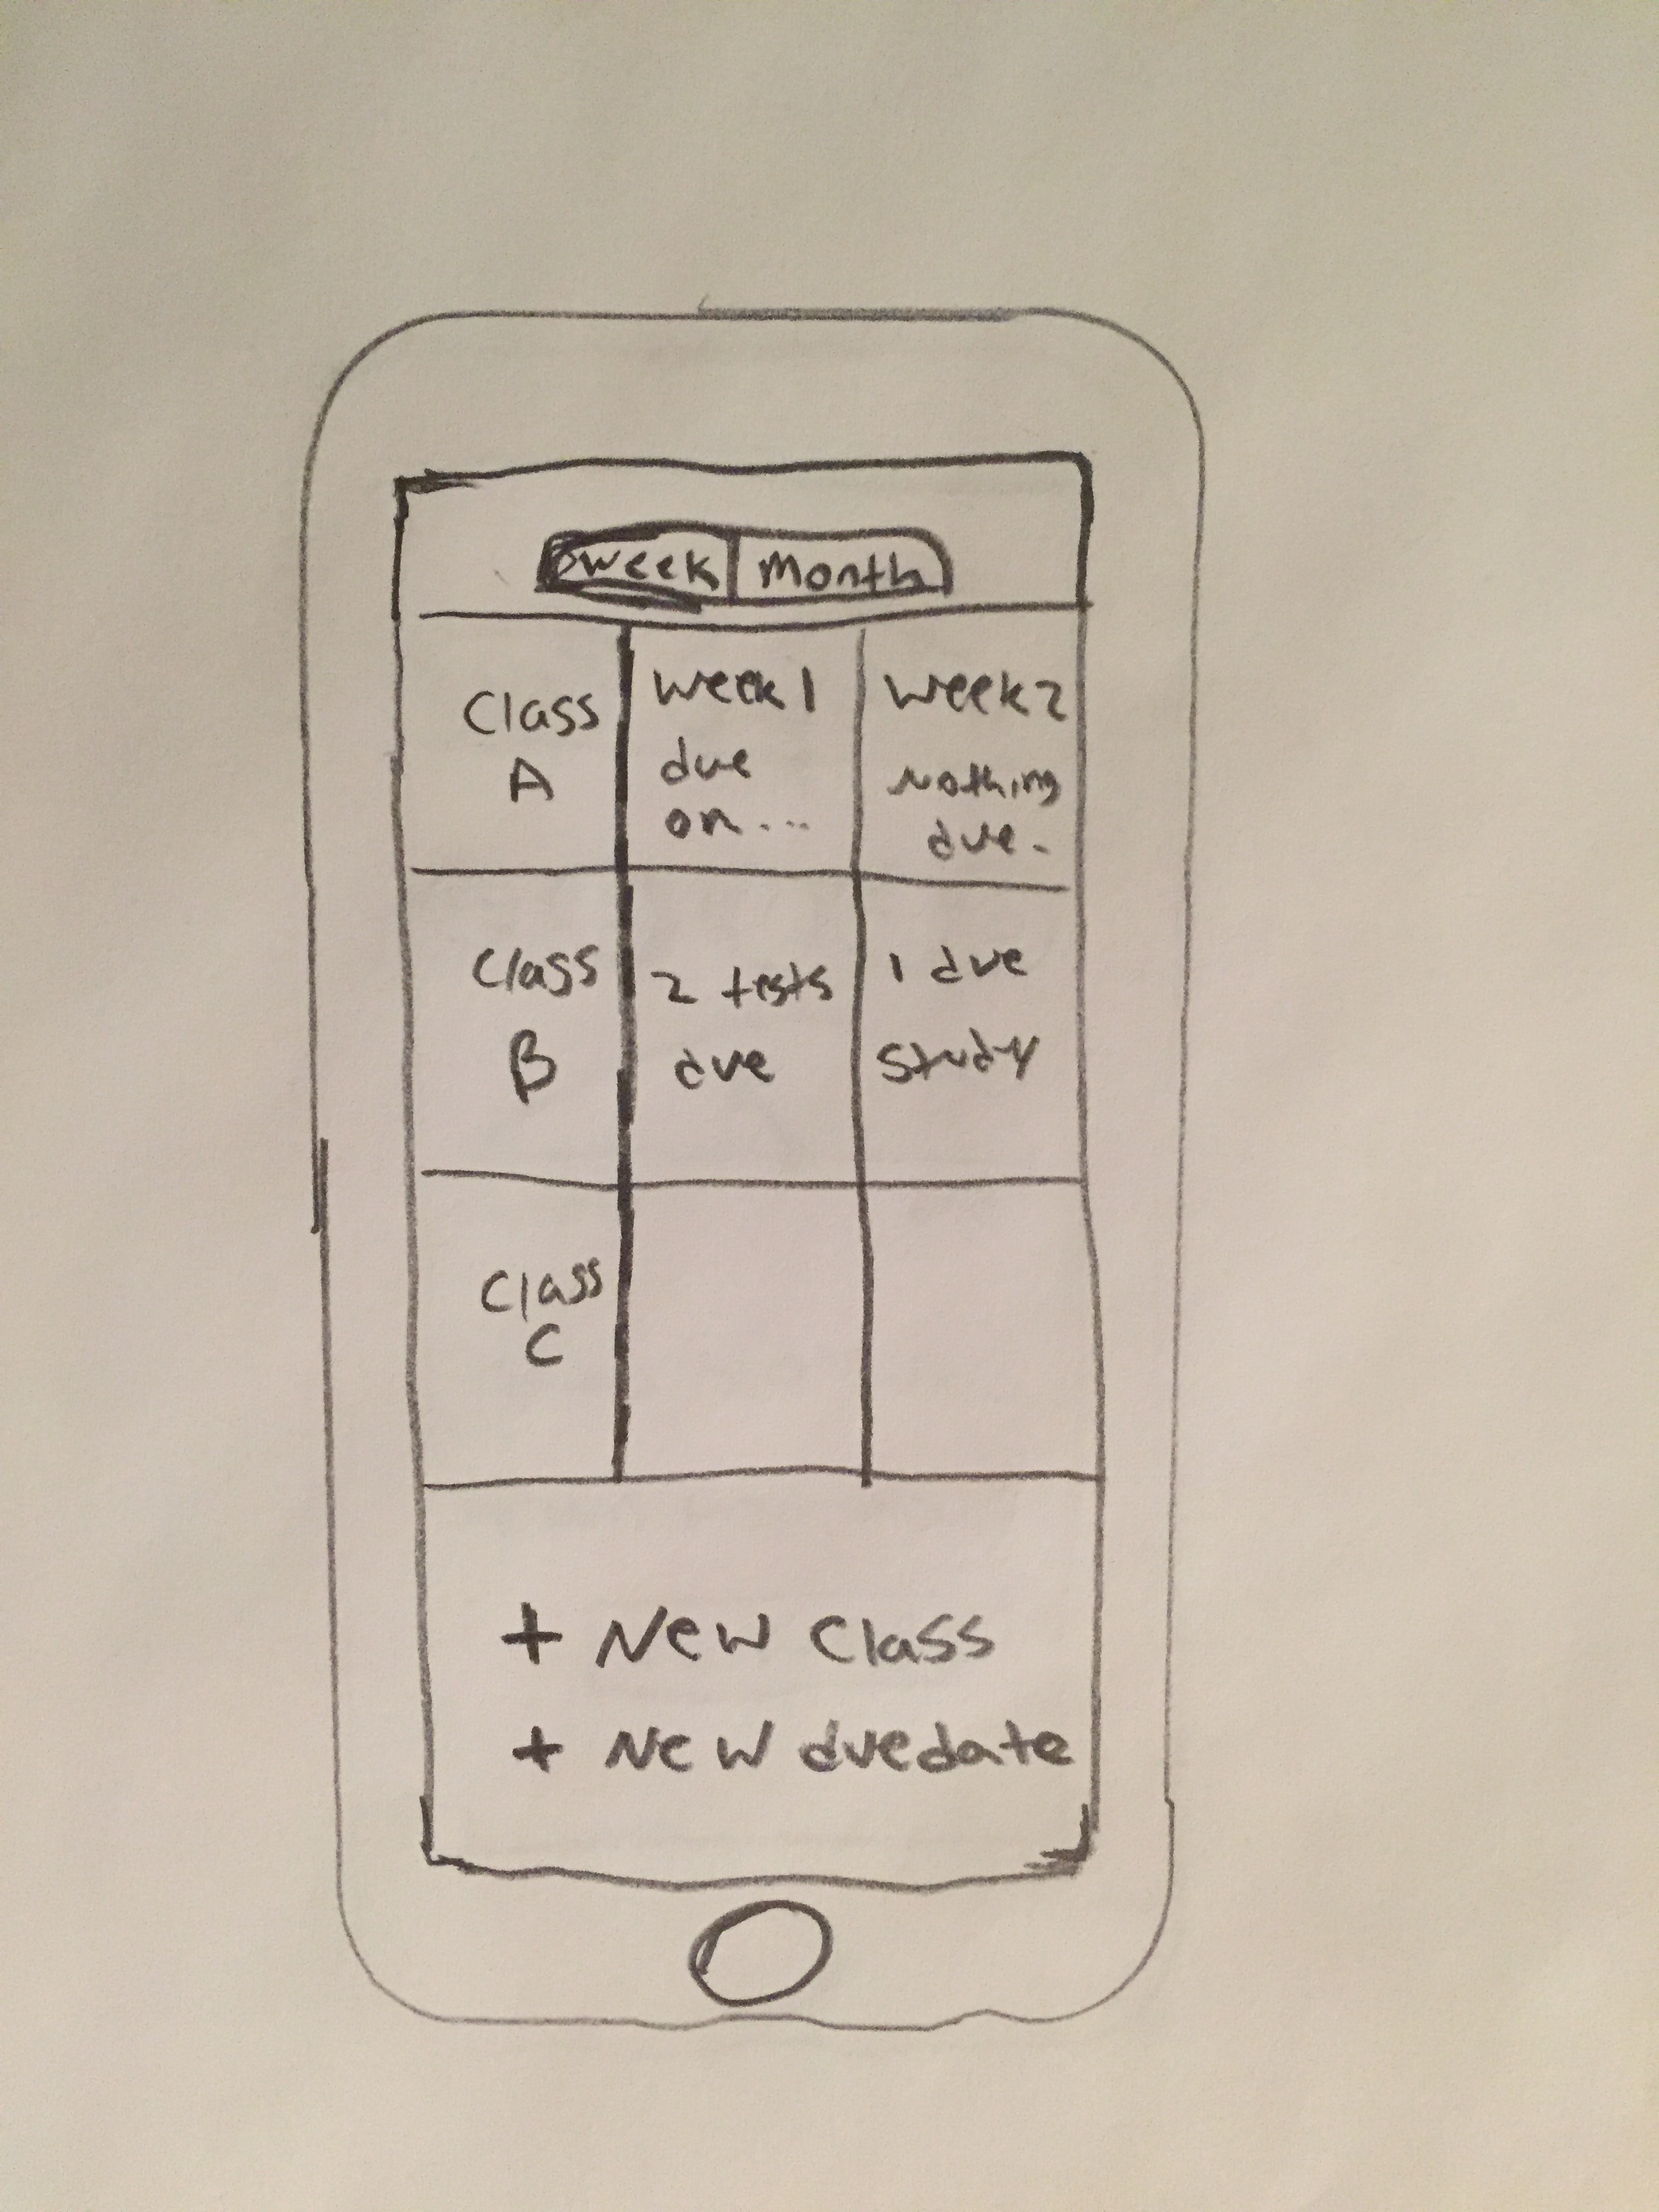 week Month
Class
A
week 1
due
on...
week 2
Nothing
due.
Class
B
2 tests
due
1 due
study
Class
C
+ New Class
+ New duedate